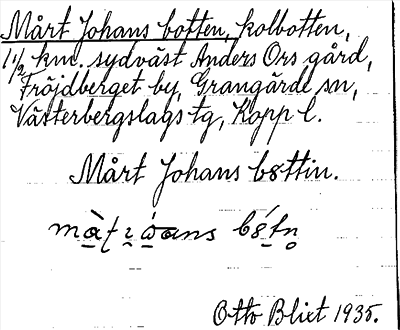 Mårt Johans botten, kolbotten,
1 1/2 km. sydväst Anders Ors gård,
Fröjdberget by, Grangärde sn,
Västerbergslags tg, Kopp l.
Mårt Johans b8ttin.
Otto Blixt 1935.